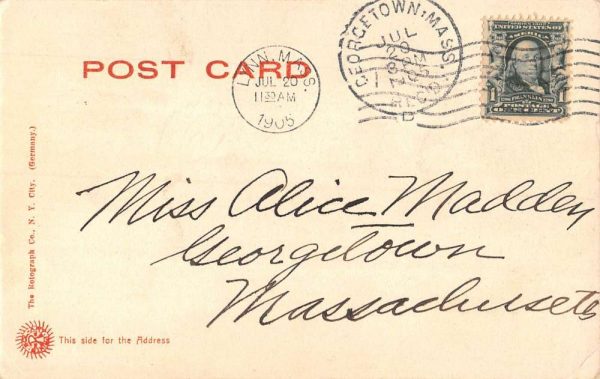 POST CARD
LYNN, MASS
JUL 20
11 30 AM
1905
GEORGETOWN, MASS
JUL
20
REC'D
UNITED STATES OF
AMERICA
FRANKLIN
POSTAGE
Miss Alice Madden
Georgetown
Massachusetts
The Rotograph Co., N. Y. City. (Germany.)
This side for the Address